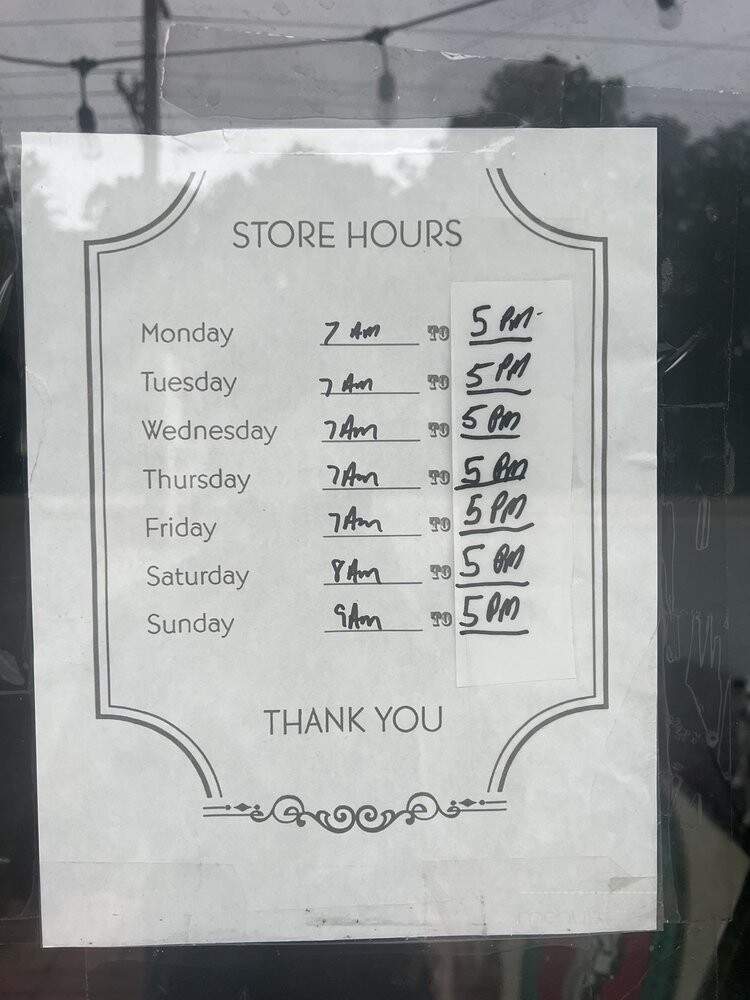 STORE HOURS
Monday 7 Am TO 5 PM
Tuesday 7 Am TO 5 PM
Wednesday 7Am TO 5 PM
Thursday 7Am TO 5 PM
Friday 7Am TO 5 PM
Saturday 8Am TO 5 PM
Sunday 9Am TO 5 PM
THANK YOU